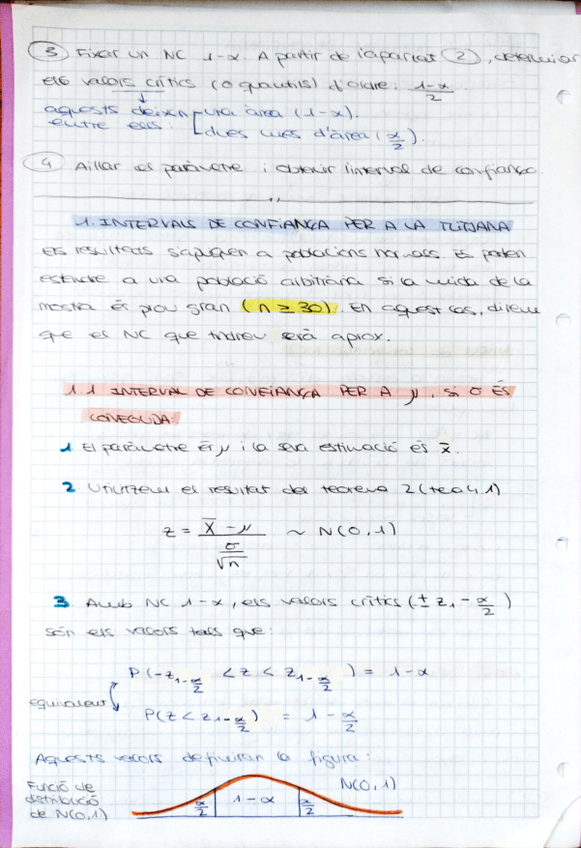 ③ Fixar un NC 1-α. A partir de l'apartat ②, determinar
els valors crítics (o quantils) d'ordre: 1-α/2
aquests deixen entre ells: [una àrea (1-α).
[dues cues d'àrea (α/2).
④ Aïllar el paràmetre i obtenir l'interval de confiança.
1. INTERVALS DE CONFIANÇA PER A LA MITJANA
Els resultats s'apliquen a poblacions normals. Es poden
estendre a una població arbitrària si la mida de la
mostra és prou gran (n ≥ 30). En aquest cas, direm
que el NC que tindrem serà aprox.
1.1 INTERVAL DE CONFIANÇA PER A μ, Si σ ÉS
CONEGUDA:
1 El paràmetre és μ i la seva estimació és x̄.
2 Utilitzem el resultat del teorema 2 (teo 4.1)
z = (x̄ - μ) / (σ/√n) ~ N(0,1)
3 Amb NC 1-α, els valors crítics (± z₁-α/2)
són els valors tals que:
P(-z₁-α/2 < z < z₁-α/2) = 1-α
equivalent
P(z < z₁-α/2) = 1-α/2
Aquests valors defineixen la figura:
Funció de
distribució
de N(0,1)
α/2 1-α α/2 N(0,1)